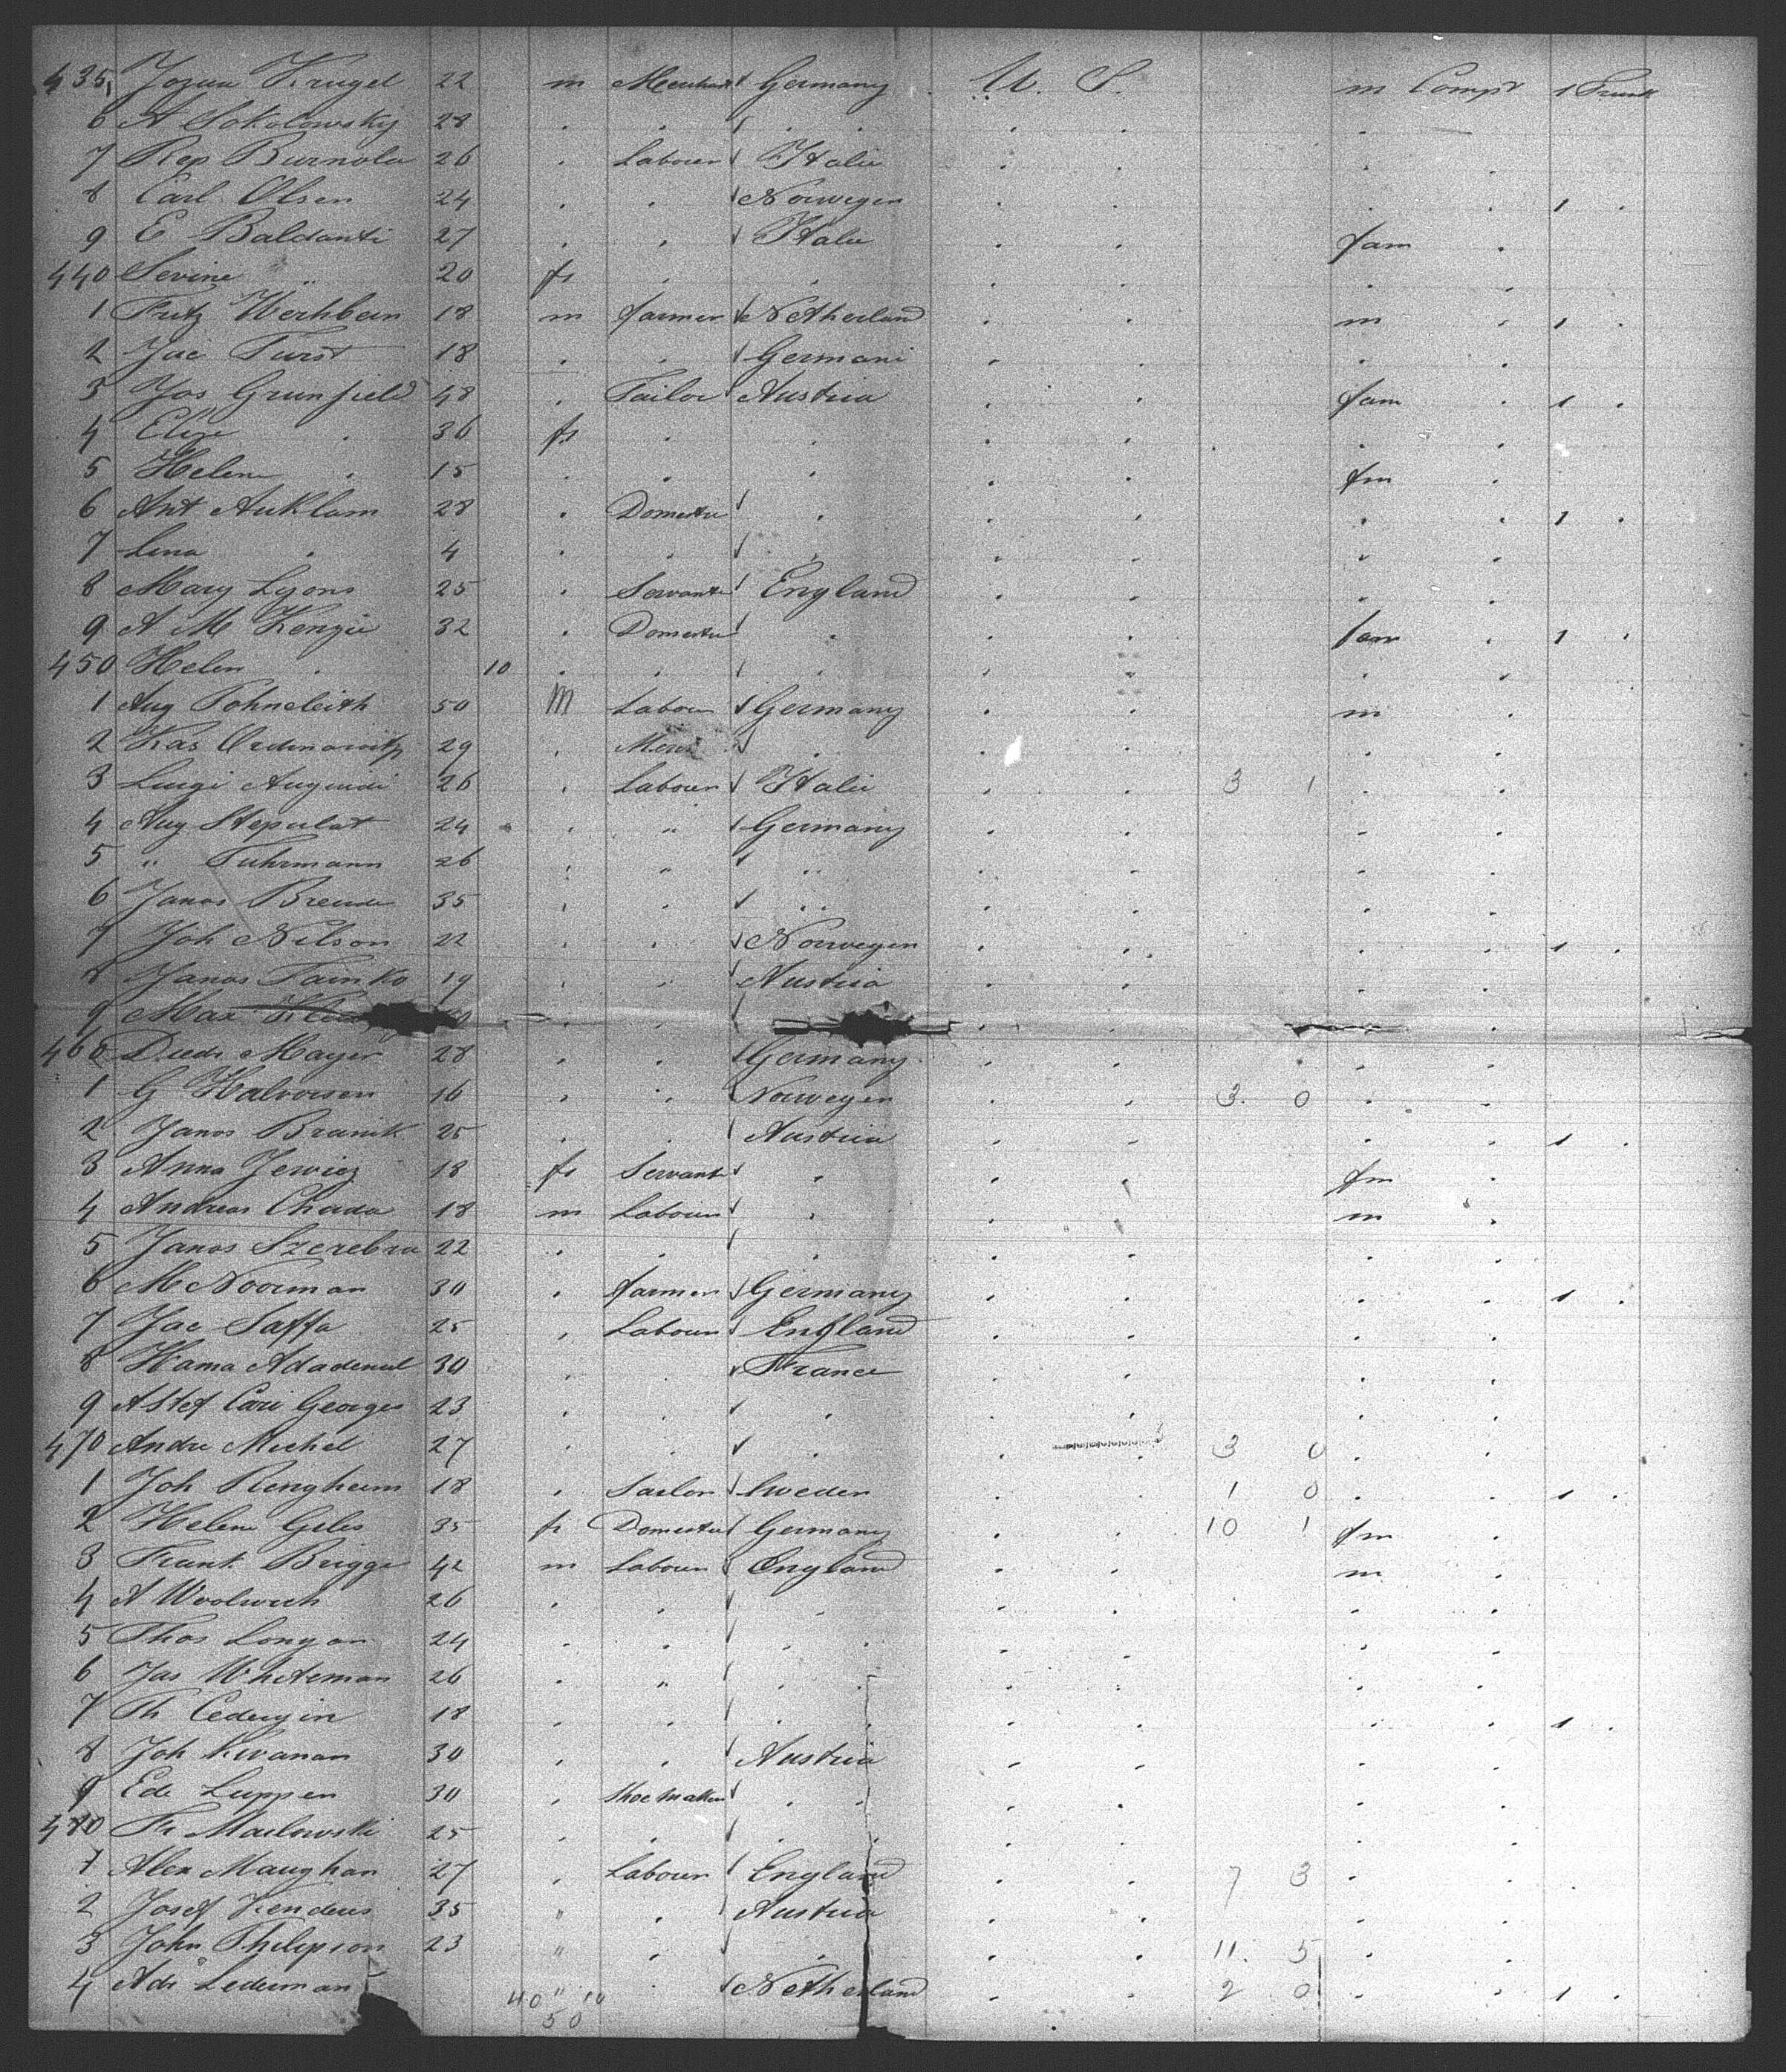 435 Jozua Krugel 22 m Merchant ✓ Germany U. S. m Compt 1 Trunk
6 A Sokolowsky 28 . . ✓ . . . . .
7 Rep Burnola 26 . Labourr ✓ Italie . . . .
8 Carl Olsen 24 . . ✓ Norwegen . . . . 1 .
9 E Baldanti 27 . . ✓ Italie . . fam .
440 Sevine " 20 fs . . . . . .
1 Fritz Werhbein 18 m farmer ✓ Netherland . . m . 1 .
2 Jac Furst 18 . . ✓ Germani . . . .
3 Jos Grunfield 48 . Tailor ✓ Austria . . fam . 1 .
4 Elize . 36 fs . . . . . .
5 Helene . 15 . . . . . fm .
6 Ant Auklam 28 . Domestic ✓ . . . . . 1 .
7 Lena . 4 . . ✓ . . . . .
8 Mary Lyons 25 . Servant ✓ England . . . .
9 A M Kenzie 32 . Domestic ✓ . . . fam . 1 .
450 Helen . 10 . . ✓ . . . . .
1 Aug Tohneleith 50 M Labour ✓ Germany . . m .
2 Kas Ordinowitz 29 . ✓ . . . . .
3 Luigi Auguidi 26 . Labourr ✓ Italie . . 3 1 . .
4 Aug Stepulat 24 . " ✓ Germany . . . .
5 " Fuhrmann 26 . " ✓ " . . . .
6 Janos Breuda 35 . . ✓ . . . . . .
7 Joh Nilson 22 . . ✓ Norwegen . . . . 1 .
8 Janos Tamko 19 . . ✓ Austria . . . .
9 Max . . ✓ . . . .
460 Diedr Mayer 28 . . ✓ Germany . . . .
1 G Halvorsen 16 . . ✓ Norwegen . . 3. 0 . .
2 Janos Branik 25 . . ✓ Austria . . . . 1 .
3 Anna Jewicz 18 fs Servant ✓ . . . fm .
4 Andreas Chuda 18 m Labourr ✓ . . . m .
5 Janos Szerebra 22 . . ✓ . . . . .
6 M Noorman 30 . farmer ✓ Germany . . . . 1 .
7 Jac Saffa 25 . Labourr ✓ England . . . .
8 Hama Adadenul 30 . . ✓ France . . . .
9 Astef Cari Georges 23 . . ✓ . . . . .
470 Andre Michel 27 . . ✓ . . . 3 0 . .
1 Joh Ringheim 18 . Sailor ✓ Sweden . . 1 0 . . 1 .
2 Helene Geles 35 fs Domestic ✓ Germany . . 10 1 fm .
3 Frank Briggs 42 m Labourr ✓ England . . m .
4 A Woolwich 26 . . ✓ . . . . .
5 Thos Longan 24 . . ✓ . . . . . .
6 Jas Whiteman 26 . " ✓ . . . . . .
7 Th Cedergin 18 . . ✓ . . . . . . 1 .
8 Joh Kwanan 30 . . ✓ Austria . . . .
9 Ede Luppen 30 . Shoemaker ✓ . . . . . .
480 Fr Mailowski 25 . . ✓ . . . . . .
1 Alex Maughan 27 . Labourr ✓ England . . 7 3 . .
2 Josef Kenders 35 " . ✓ Austria . . . .
3 John Philipson 23 " . ✓ . . . 11. 5 . .
4 Adr Lederman " . ✓ Netherland . . 2 0 . . 1 .
40 10
50